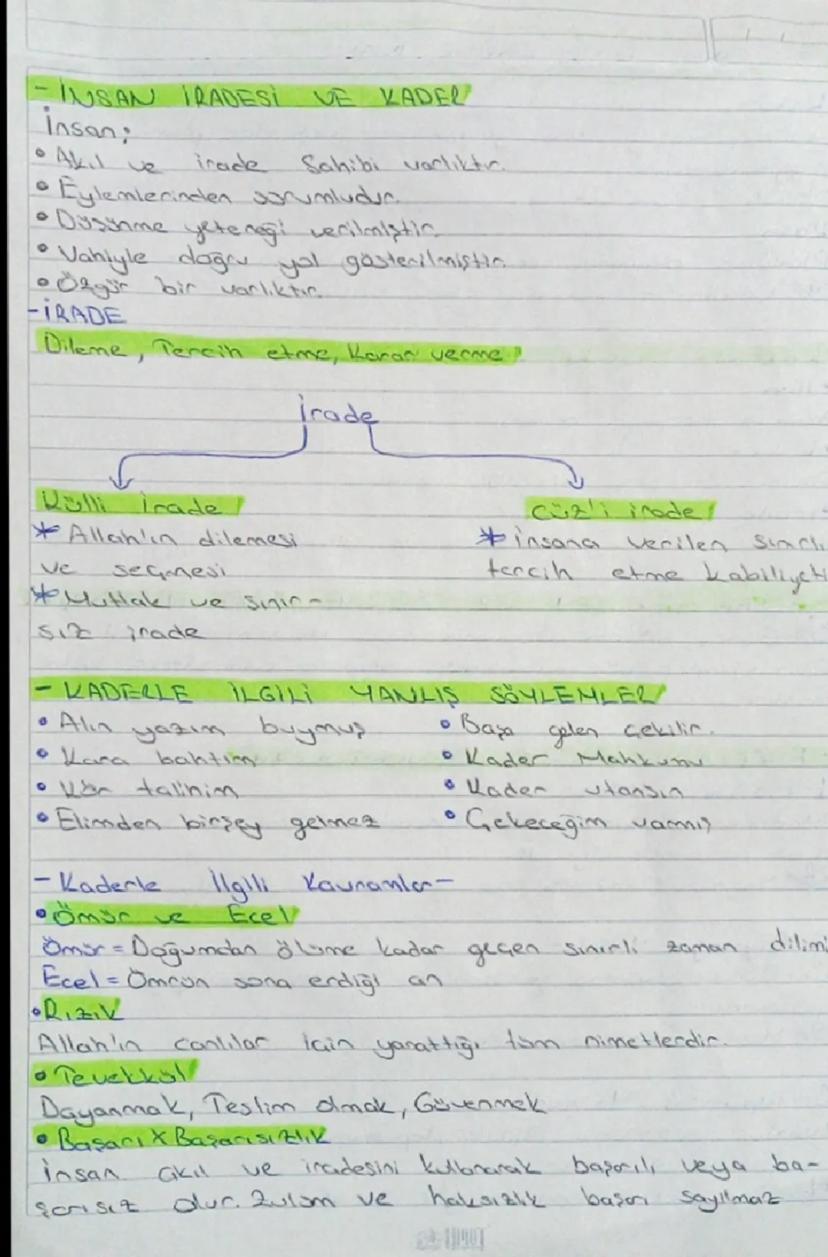 - İNSAN İRADESİ VE KADER
İnsan;
• Akıl ve irade sahibi varlıktır.
• Eylemlerinden sorumludur.
• Düşünme yeteneği verilmiştir.
• Vahiyle doğru yol gösterilmiştir.
• Özgür bir varlıktır.
- İRADE
Dileme, Tercih etme, Karar verme
İrade
Külli İrade
cüz'i irade
* Allah'ın dilemesi
ve seçmesi
* Mutlak ve sınır-
sız irade
* insana verilen sınırlı
tercih etme kabiliyeti
- KADERLE İLGİLİ YANLIŞ SÖYLEMLER
• Alın yazım buymuş
• Kara bahtım
• Kör talihim
• Elimden birşey gelmez
• Başa gelen çekilir.
• Kader Mahkumu
• Kader utansın
• Çekeceğim varmış
- Kaderle İlgili Kavramlar -
• Ömür ve Ecel
Ömür = Doğumdan ölüme kadar geçen sınırlı zaman dilimi
Ecel = Ömrün sona erdiği an
• Rızık
Allah'ın canlılar için yarattığı tüm nimetlerdir.
• Tevekkül
Dayanmak, Teslim olmak, Güvenmek
• Başarı X Başarısızlık
insan akıl ve iradesini kullanarak başarılı veya ba-
şarısız olur. Zulüm ve haksızlık başarı sayılmaz